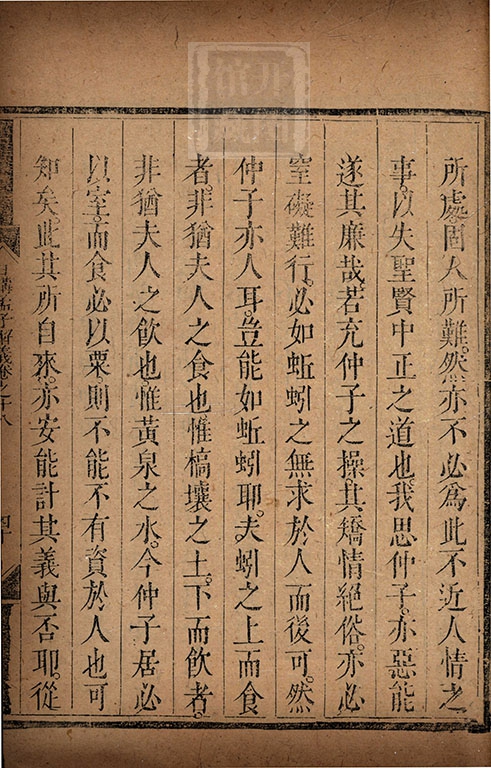 所處固人所難。然亦不必為此不近人情之
事。以失聖賢中正之道也。我思仲子。亦惡能
遂其廉哉。若充仲子之操。其矯情絕俗。亦必
窒礙難行。必如蚯蚓之無求於人而後可。然
仲子亦人耳。豈能如蚯蚓耶。夫蚓之上而食
者。非猶夫人之食也。惟槁壤之土。下而飲者。
非猶夫人之飲也。惟黃泉之水。今仲子居必
以室。而食必以粟。則不能不有資於人也可
知矣。此其所自來。亦安能計其義與否耶。從
日講孟子解義卷之十八